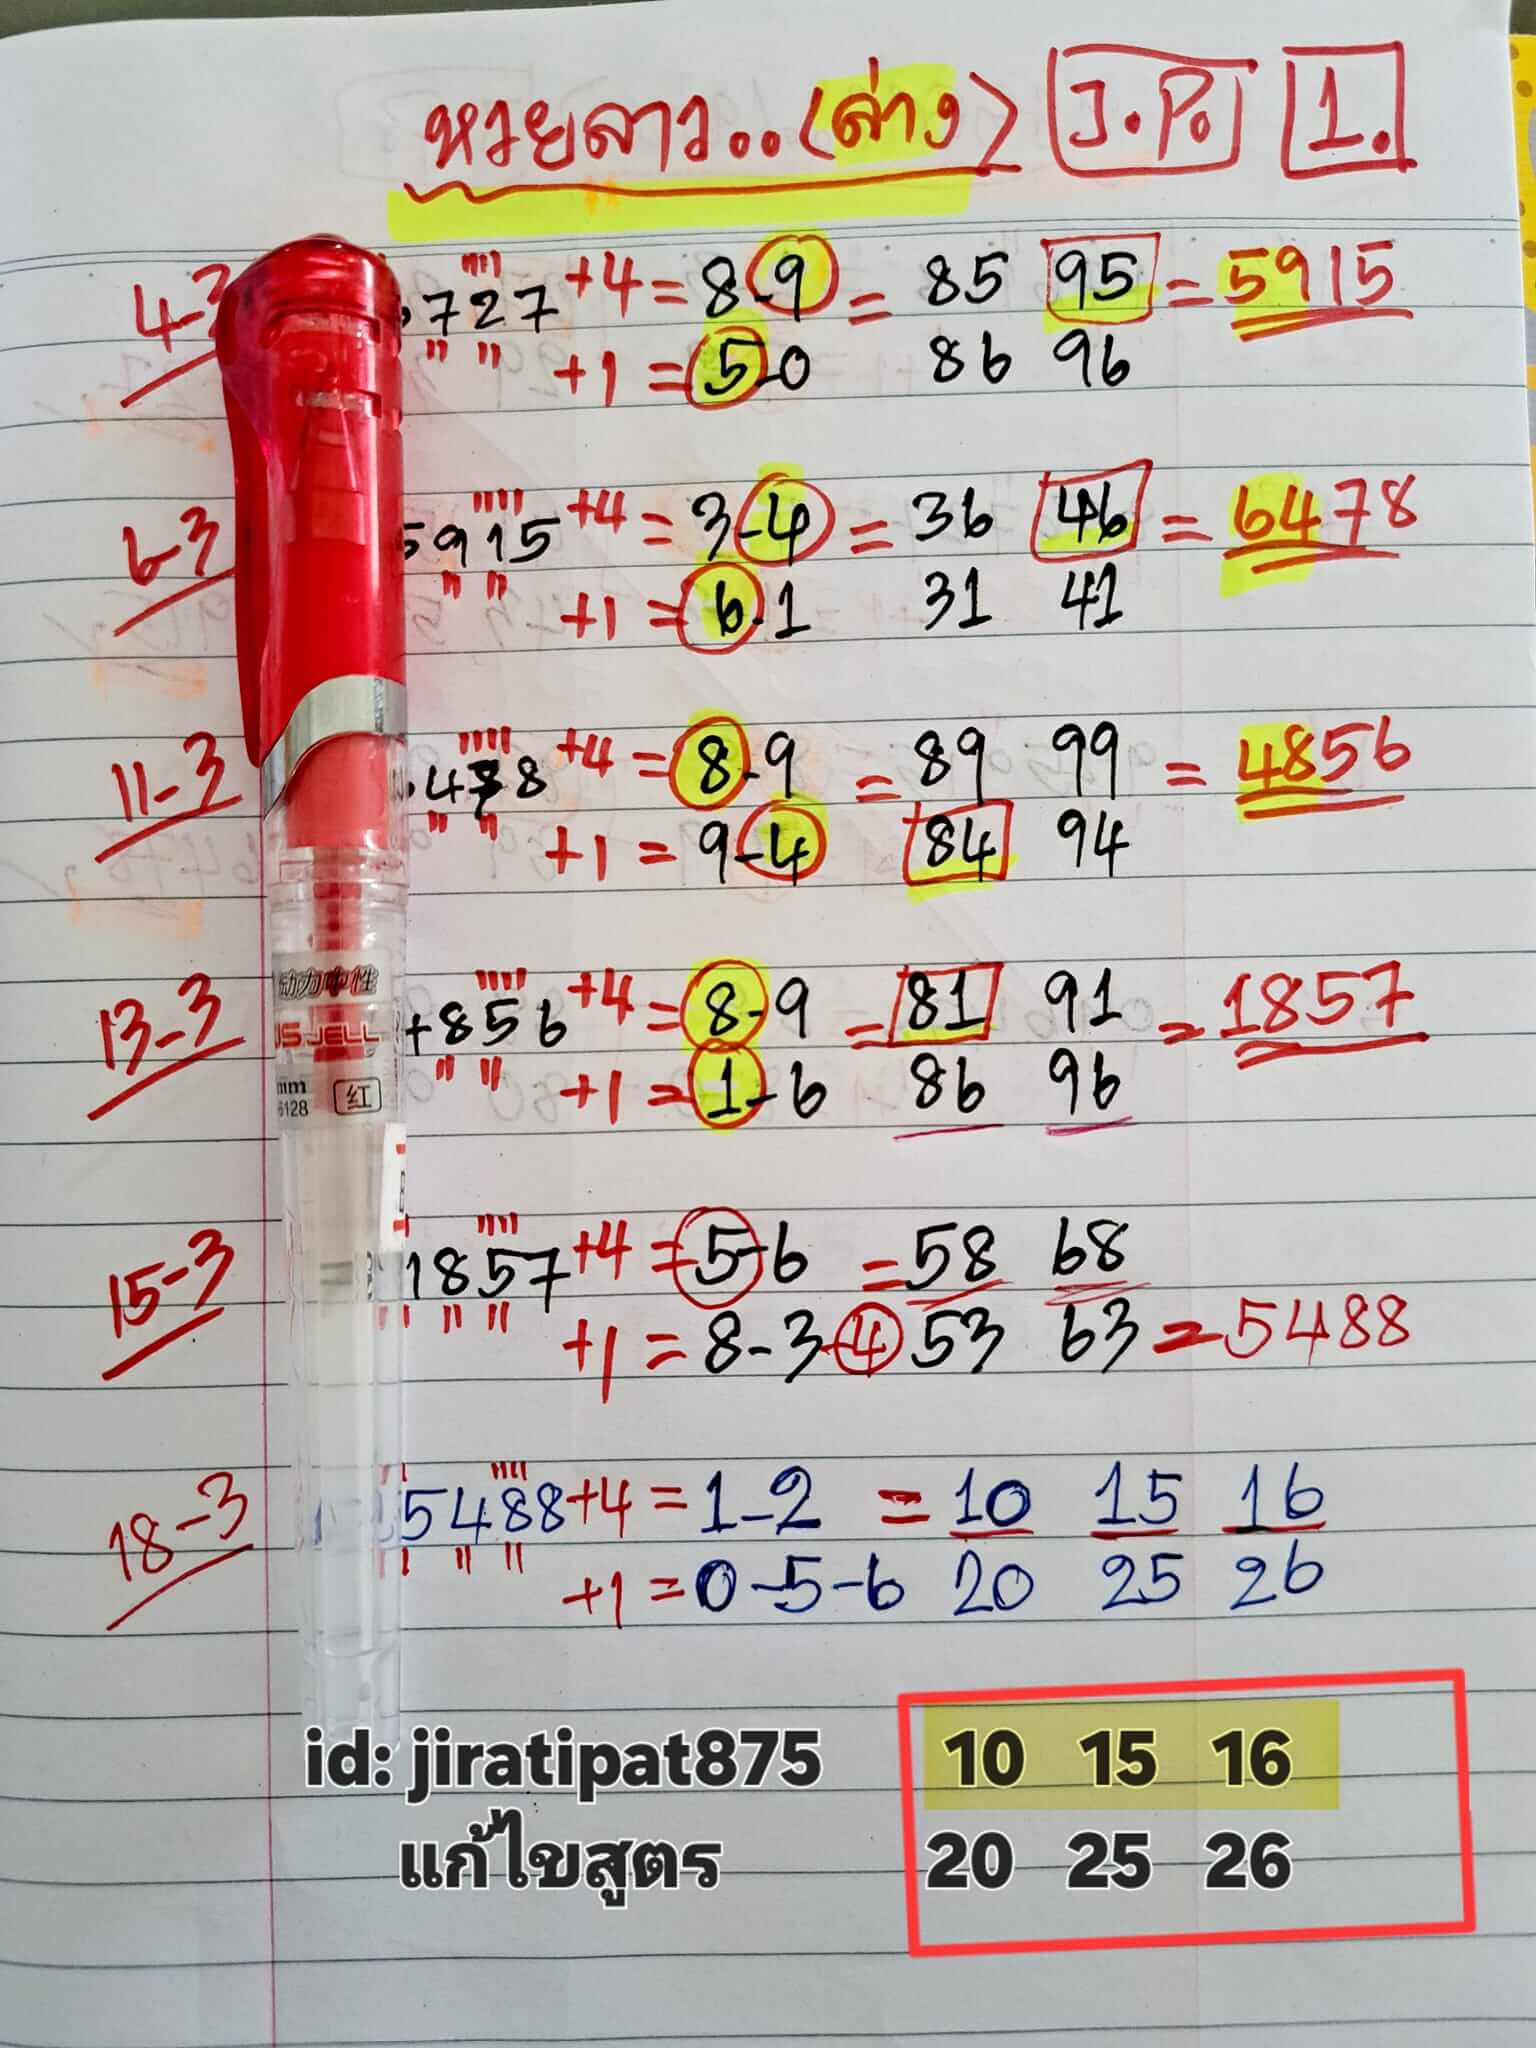 หวยลาว..(ล่าง) J.P. 1.
4-3 727 +4 = 8-9 = 85 95 = 5915
+1 = 5-0 86 96
6-3 5915 +4 = 3-4 = 36 46 = 6478
+1 = 6-1 31 41
11-3 478 +4 = 8-9 = 89 99 = 4856
+1 = 9-4 84 94
13-3 4856 +4 = 8-9 = 81 91 = 1857
+1 = 1-6 86 96
动力中性
US JELL
mm
6128 红
15-3 1857 +4 = 5-6 = 58 68
+1 = 8-3-4 53 63 = 5488
18-3 5488 +4 = 1-2 = 10 15 16
+1 = 0-5-6 20 25 26
id: jiratipat875 10 15 16
แก้ไขสูตร 20 25 26